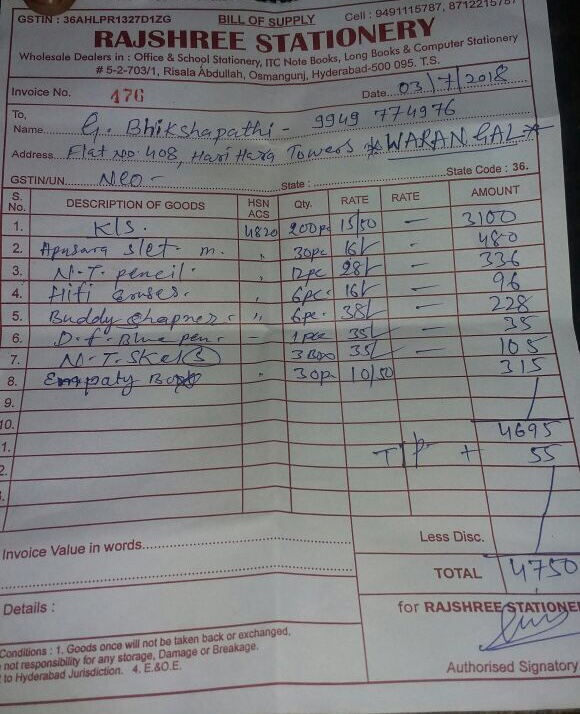 GSTIN : 36AHLPR1327D1ZG BILL OF SUPPLY Cell : 9491115787, 8712215787
RAJSHREE STATIONERY
Wholesale Dealers in : Office & School Stationery, ITC Note Books, Long Books & Computer Stationery
# 5-2-703/1, Risala Abdullah, Osmangunj, Hyderabad-500 095. T.S.
Invoice No. 476 Date 03/7/2018
To,
Name G. Bhikshapathi - 9949 774976
Address Flat no. 408, Hari Hara Towers WARANGAL
GSTIN/UN NLO - State : State Code : 36.
S. No. DESCRIPTION OF GOODS HSN ACS Qty. RATE RATE AMOUNT
1. K/S. 4820 200pc 15/50 — 3100
2. Apusara slet. m. " 30pc 16/- — 480
3. N.T. pencil. " 12pc 28/- — 336
4. Hifi " 6pc. 16/- — 96
5. Buddy Shapner. " 6pc. 38/- — 228
6. D.f. Blue pen - 1pce 35/- — 35
7. N.T. Skel 3 Box 35/- — 105
8. Empaty Box " 30pc 10/50 315
9.
10. 4695
1. T/P + 55
2.
3.
Invoice Value in words Less Disc.
TOTAL 4750
Details : for RAJSHREE STATIONE
Conditions : 1. Goods once will not be taken back or exchanged,
not responsibility for any storage, Damage or Breakage.
to Hyderabad Jurisdiction. 4. E.&O.E.
Authorised Signatory